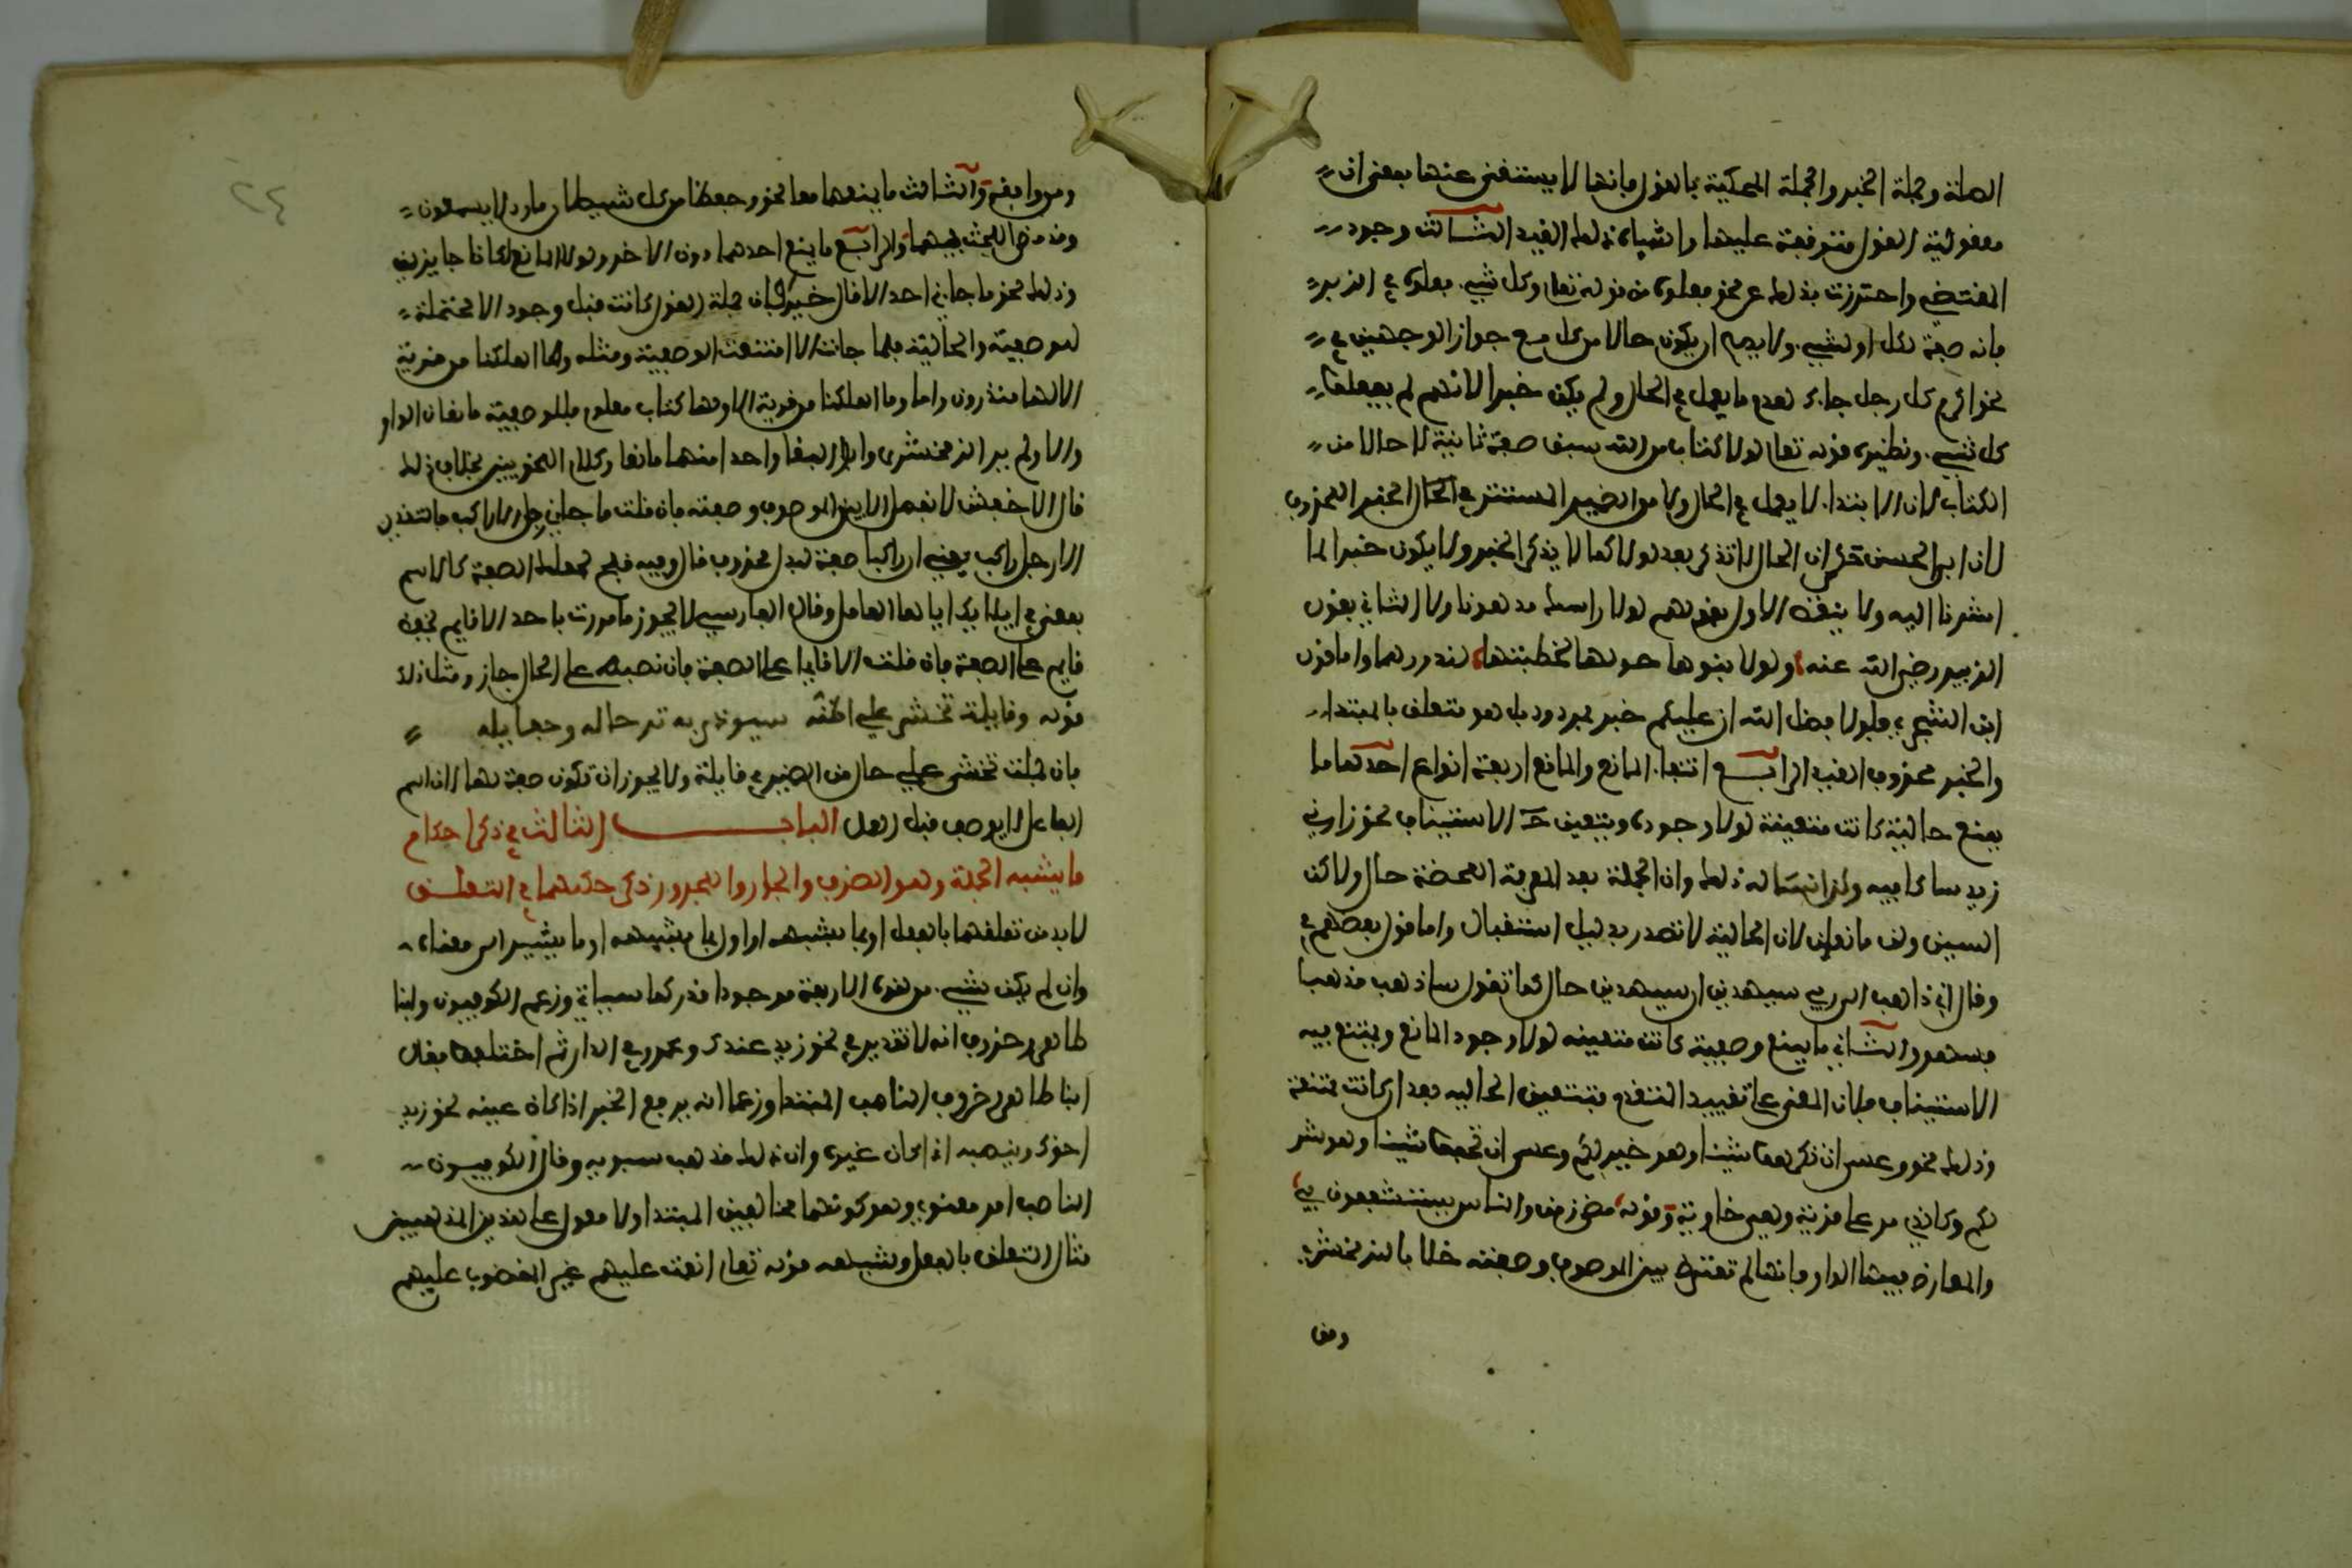 الصلة وجملة الخبر والجملة المحكية بالقول فإنها لا يستغنى عنها بمعنى ان
معقولية القول متوقفة عليها واشباه ذلك القيد الثالث وجود
المقتضي واحترزت بذلك عن نحو فعلوه من قوله تعالى وكل شيء فعلوه في الزبر
فانه صفة لكل او لشيء ولا يصح ان يكون حالا من كل مع جواز الوجهين في
نحو اكرم كل رجل جاءك لعدم ما يعمل في الحال ولم يكن خبرا لانهم لم يفعلوا
كل شيء ونظيره قوله تعالى لولا كتاب من الله سبق صفة ثانية لا حالا من
الكتاب لان الابتداء لا يعمل في الحال ولا من الضمير المستتر في الخبر المحذوف
لان ابا الحسن حكى ان الحال لا تذكر بعد لولا كما لا يذكر الخبر ولا يكون خبرا لما
اشرنا اليه ولا ينقض الاول بقولهم لولا راسك مدهونا ولا الثاني بقول
الزبير رضي الله عنه ولولا بنوها حولها لخطبتها لندورهما واما قول
ابن الشجري في ولولا فضل الله ان عليكم خبر فمردود بل هو متعلق بالمبتدا
والخبر محذوف القيد الرابع انتفاء المانع والمانع اربعة انواع احدها ما
يمنع حالية كانت متعينة لولا وجوده ويتعين ح الاستيناف نحو زارني
زيد ساكافيه ولن انسى له ذلك وان الجملة بعد المعرفة المحضة حال ولاكن
السين ولن مانعان لان الحالية لا تصدر بدليل استقبال واما قول بعضهم في
وقال اني ذاهب الى ربي سيهدين ان سيهدين حال كما تقول ساذهب مهديا
فسهو والثاني ما يمنع وصفية كانت متعينة لولا وجود المانع ويمتنع فيه
الاستيناف فلان المعنى على تقييد المتقدم فتتعين الحالية بعد ان كانت ممتنعة
وذلك نحو وعسى ان تكرهوا شيئا وهو خير لكم وعسى ان تحبوا شيئا وهو شر
لكم وكالذي مر على قرية وهي خاوية وقوله مضى زمن والناس يستشفعون بي
والمعارض فيها الواو فانها لم تعترض بين الموصوف وصفته خلافا للزمخشري
ومن
٢٤
ومن وافقه والثالث ما يمنعهما معا نحو وحفظا من كل شيطان مارد لا يسمعون
وقد مضى البحث فيهما والرابع ما يمنع احدهما دون الاخر ولولا المانع لكانا جايزين
وذلك نحو ما جاني احد الا قال خيرا فان جملة القول كانت قبل وجود الا محتملة
للوصفية والحالية فلما جات الا امتنعت الوصفية ومثله وما اهلكنا من قرية
الا لها منذرون واما وما اهلكنا من قرية الا ولها كتاب معلوم فللوصفية مانعان الواو
والا ولم ير الزمخشري وابو البقا واحدا منهما مانعا وكلام النحويين بخلاف ذلك
قال الاخفش لا تفصل الا بين الموصوف وصفته فان قلت ما جاني رجل الا راكب فالتقدير
الا رجل راكب يعني ان راكبا صفة لبدل محذوف قال وفيه قبح لجعلك الصفة كالاسم
يعني في ايلايك اياها العامل وقال الفارسي لا يجوز ما مررت باحد الا قايم نحو
قايم على الصفة فان قلت الا قايما على الصفة فان نصبه على الحال جاز ومثل ذلك
قوله وقايلة تخشى علي اظنه سيودي به ترحاله وجعايله
فان جملة تخشى علي حال من الضمير في قايلة ولا يجوز ان تكون صفة لها لان اسم
الفاعل لا يوصف قبل العمل الباب الثالث في ذكر احكام
ما يشبه الجملة وهو الظرف والجار والمجرور ذكر حكمهما في التعلق
لا بد من تعلقهما بالفعل او بما يشبهه او اول بما يشبهه او ما يشير الى معناه
وان لم يكن شيء من هذه الاربعة موجودا قدر كما سياتي وزعم الكوفيون وابنا
طاهر وخروف انه لا تقدير في نحو زيد عندك وعمرو في الدار ثم اختلفوا فقال
ابنا طاهر وخروف الناصب المبتدا وزعما انه يرفع الخبر اذا كان عينه نحو زيد
اخوك وينصبه اذا كان غيره وان ذلك مذهب سيبويه وقال الكوفيون
الناصب امر معنوي وهو كونهما مخالفين المبتدا ولا معول على هذين المذهبين
مثال التعلق بالفعل وشبهه قوله تعالى انعمت عليهم غير المغضوب عليهم